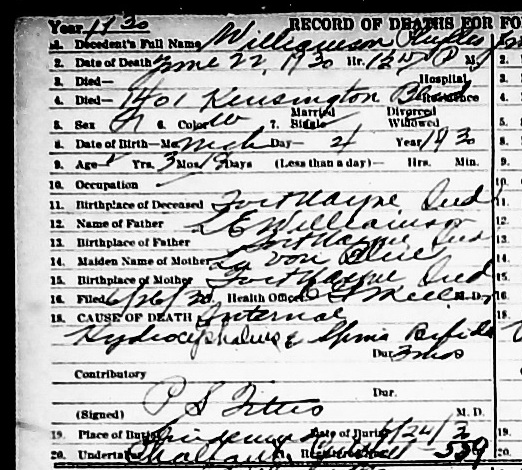 Year 1930 RECORD OF DEATHS FOR FO
1. Decedent's Full Name Williamson Phyllis
2. Date of Death June 22, 1930 Hr. 12 P M.
3. Died— Hospital
4. Died— 1401 Kensington Blvd Residence
5. Sex F 6. Color W 7. Married Single Divorced Widowed
8. Date of Birth—Mo. Mch Day— 4 Year 1930
9. Age— Yrs. 3 Mos. 18 Days (Less than a day)— Hrs. Min.
10. Occupation
11. Birthplace of Deceased Fort Wayne Ind
12. Name of Father L E Williamson
13. Birthplace of Father Fort Wayne Ind
14. Maiden Name of Mother La Von
15. Birthplace of Mother Fort Wayne Ind
16. Filed 6/26/30 Health Officer M. D.
18. CAUSE OF DEATH Internal
Hydrocephalus & Spina Bifida
Dur. 3 mos
Contributory
Dur.
(Signed) P S M. D.
19. Place of Burial Date of Burial 6/24/3
20. Undertaker 559